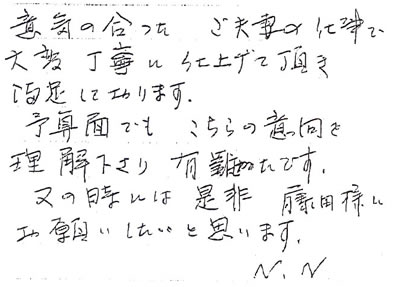 意気の合った ご夫妻の仕事で
大変 丁寧に 仕上げて頂き
満足して功ります.
予算面でも こちらの意向を
理解下さり 有難かたです.
又の時には 是非 藤田様に
功願いしたいと思います.
N.N